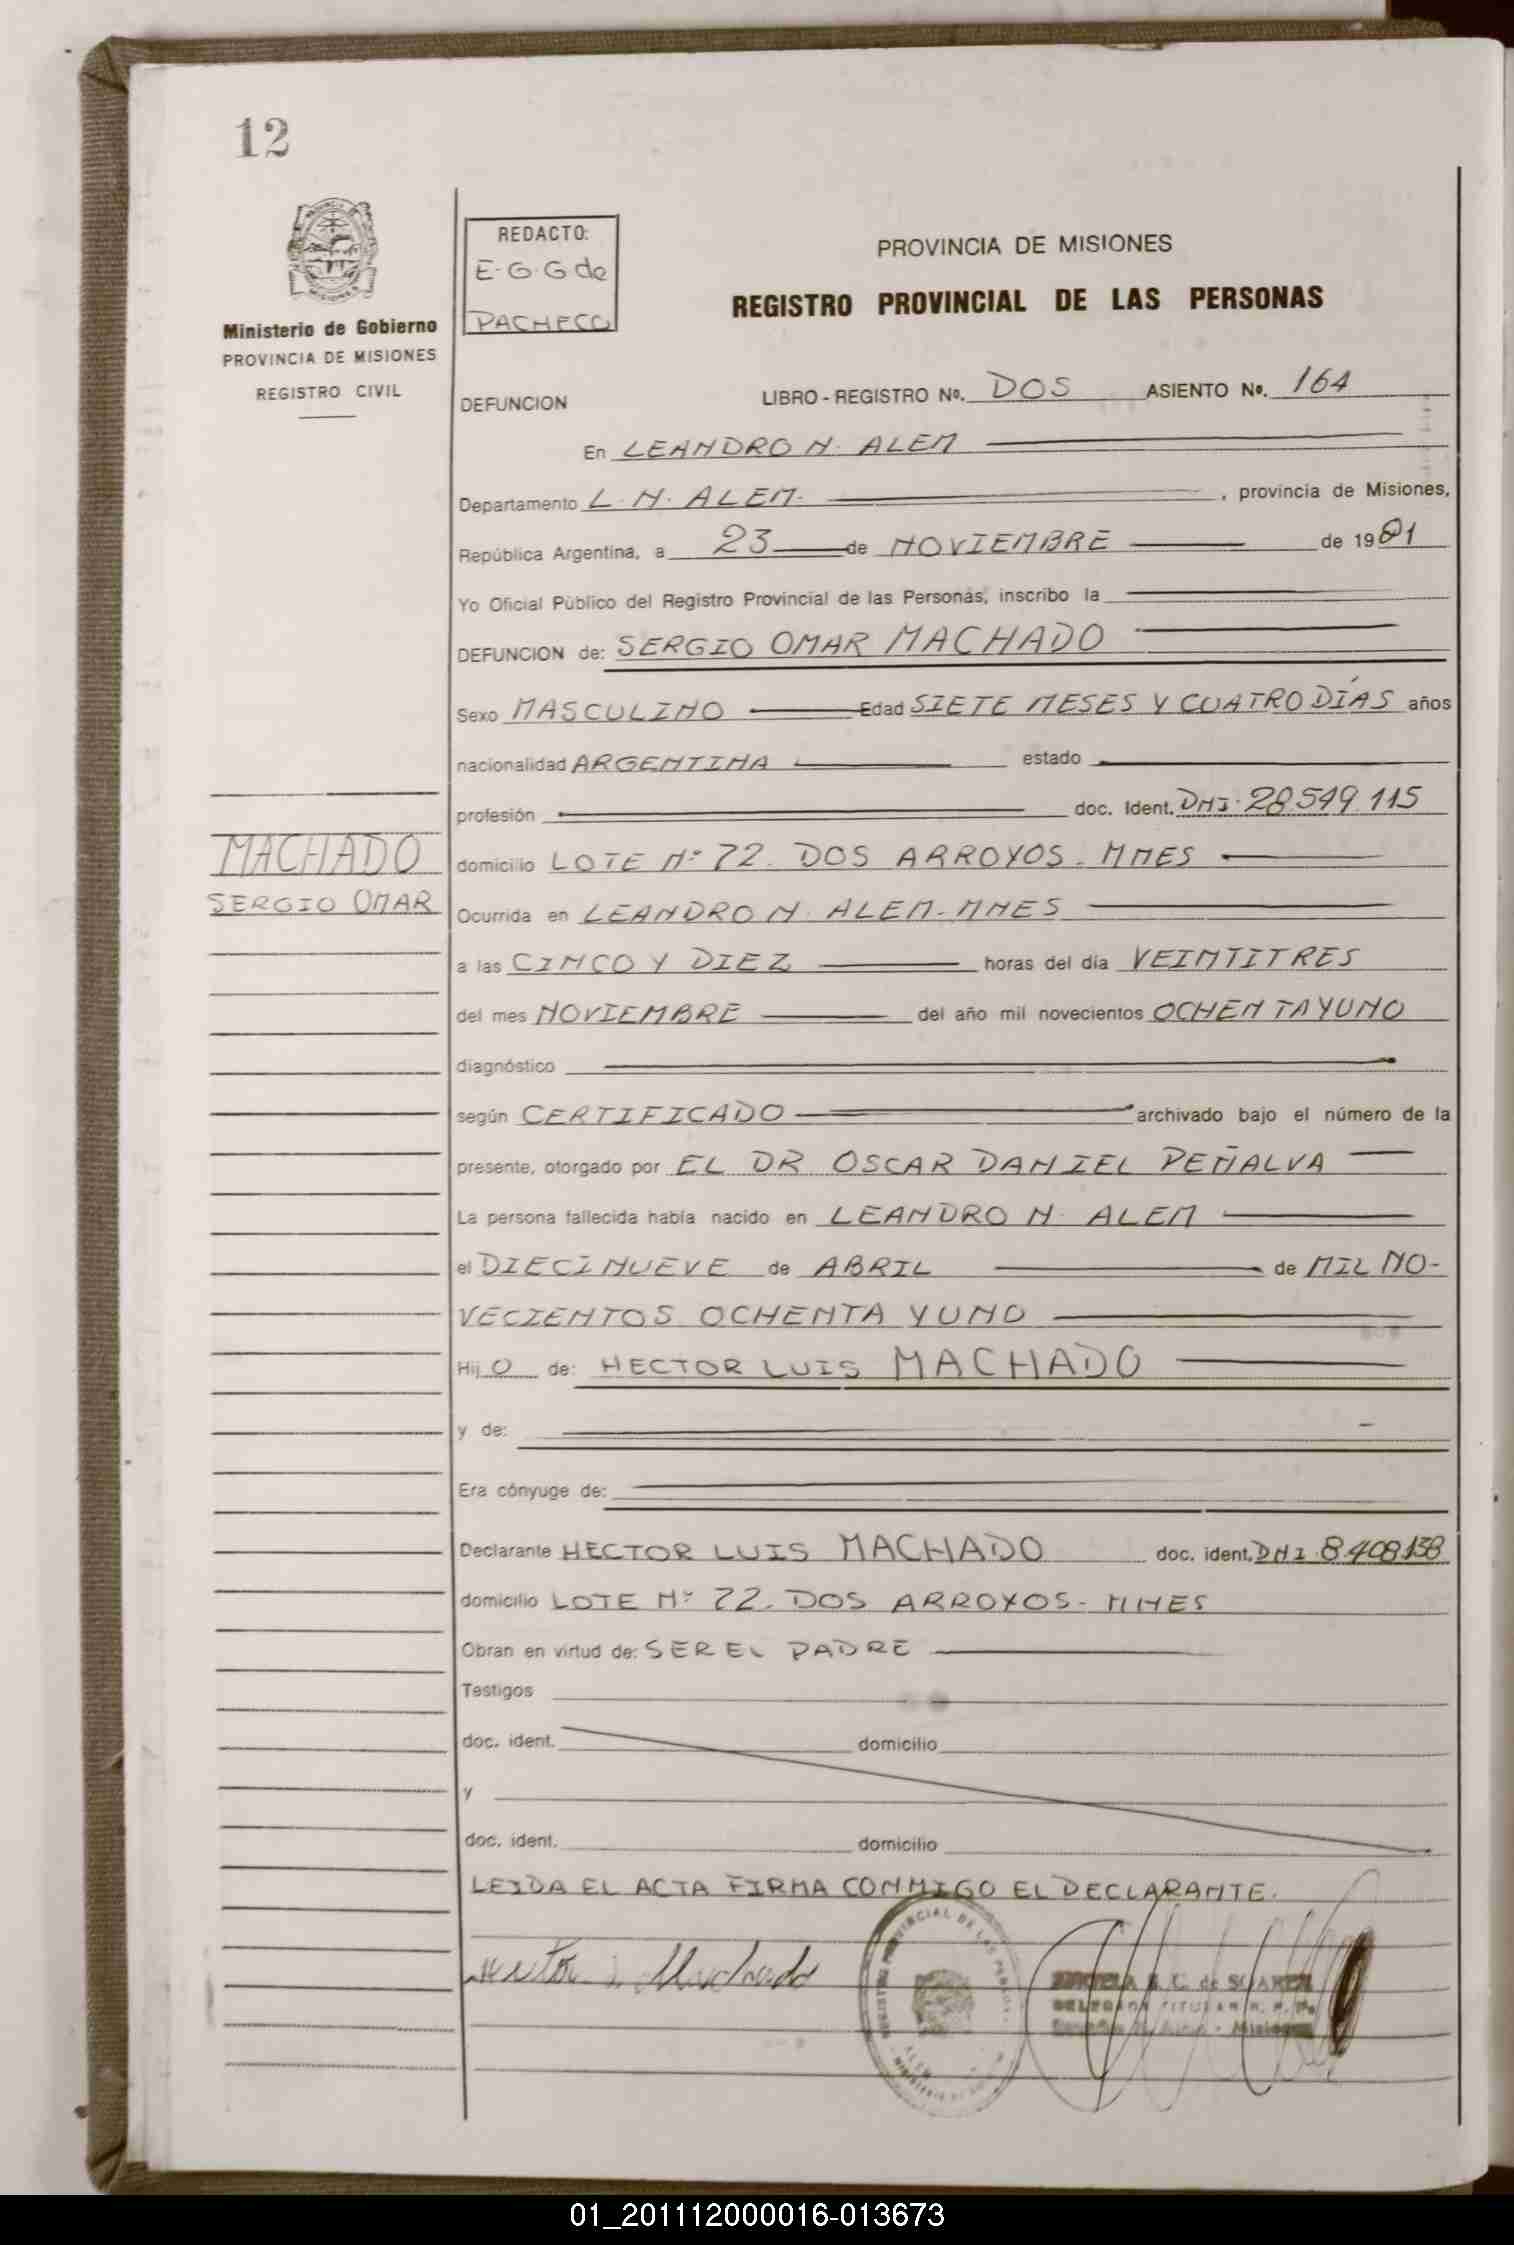 12
REDACTO:
E.G.G de
PACHECO
Ministerio de Gobierno
PROVINCIA DE MISIONES
REGISTRO CIVIL
PROVINCIA DE MISIONES
REGISTRO PROVINCIAL DE LAS PERSONAS
DEFUNCION LIBRO - REGISTRO Nº. DOS ASIENTO Nº. 164
En LEANDRO N. ALEM
Departamento L. N. ALEM. , provincia de Misiones,
República Argentina, a 23 de NOVIEMBRE de 1981
Yo Oficial Público del Registro Provincial de las Personas, inscribo la
DEFUNCION de: SERGIO OMAR MACHADO
Sexo MASCULINO Edad SIETE MESES Y CUATRO DÍAS años
nacionalidad ARGENTINA estado
profesión doc. Ident. DNI. 28.549.115
MACHADO
SERGIO OMAR
domicilio LOTE Nº 72. DOS ARROYOS - MNES
Ocurrida en LEANDRO N. ALEM - MNES
a las CINCO Y DIEZ horas del día VEINTITRES
del mes NOVIEMBRE del año mil novecientos OCHENTA Y UNO
diagnóstico
según CERTIFICADO archivado bajo el número de la
presente, otorgado por EL DR OSCAR DANIEL PEÑALVA
La persona fallecida había nacido en LEANDRO N. ALEM
el DIECINUEVE de ABRIL de MIL NO-
VECIENTOS OCHENTA Y UNO
Hij O de: HECTOR LUIS MACHADO
y de:
Era cónyuge de:
Declarante HECTOR LUIS MACHADO doc. ident. DNI. 8.408.138
domicilio LOTE Nº 72. DOS ARROYOS - MNES
Obran en virtud de: SER EL PADRE
Testigos
doc. ident. domicilio
y
doc. ident. domicilio
LEIDA EL ACTA FIRMA CONMIGO EL DECLARANTE.
Machado
A. C. de SUAREZ
TITULAR R. P. P.
01_201112000016-013673